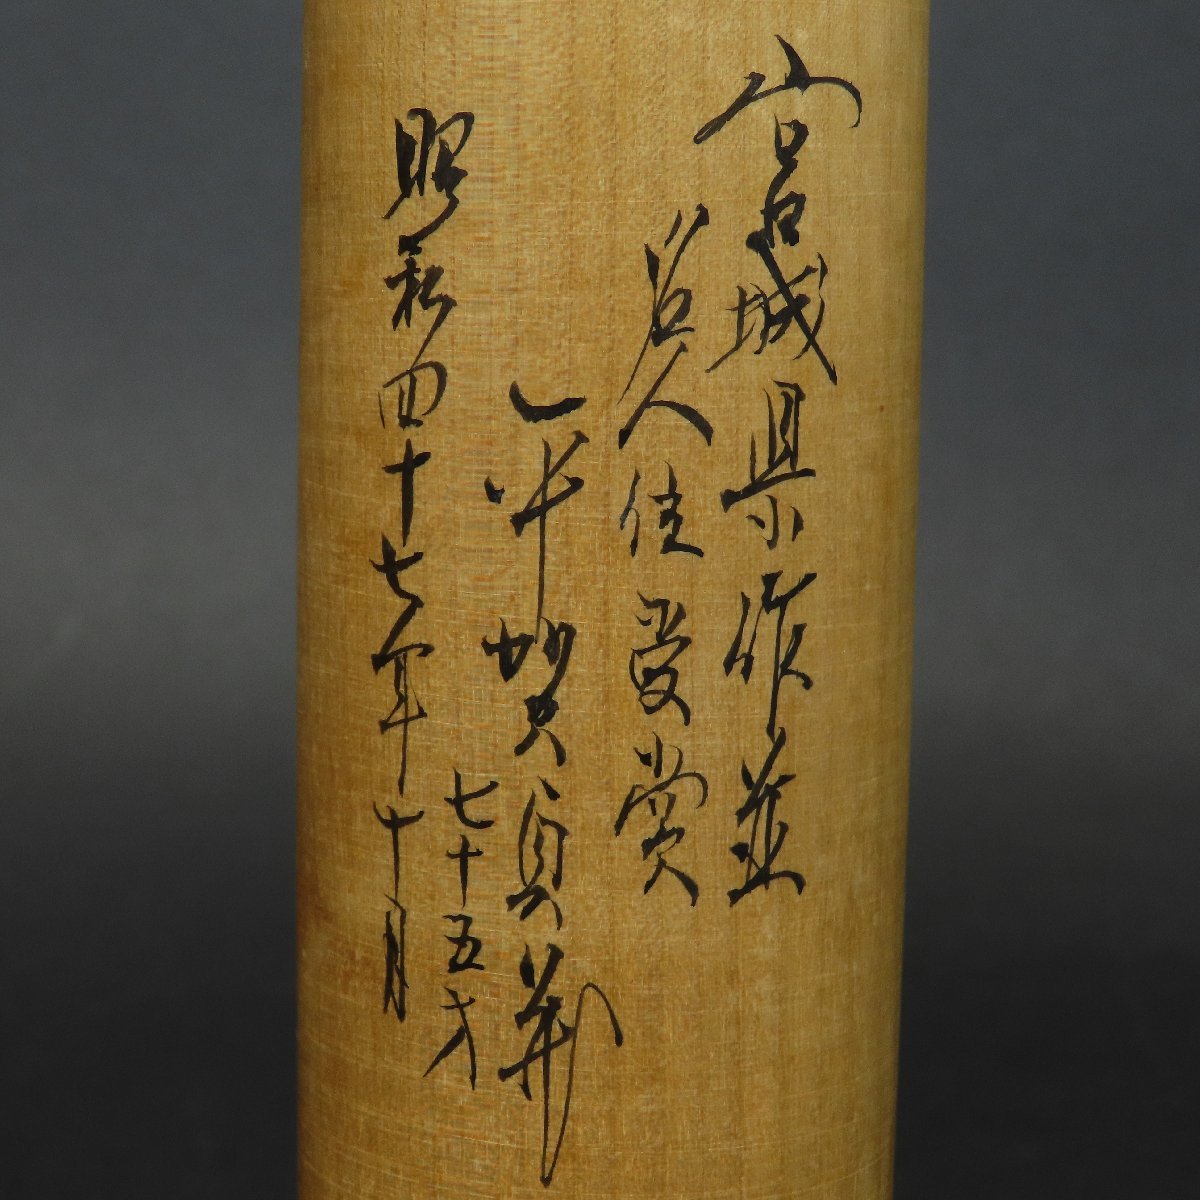 宮城県作並
名人佳受賞
平賀貞蔵
七十五才
昭和四十七年十月